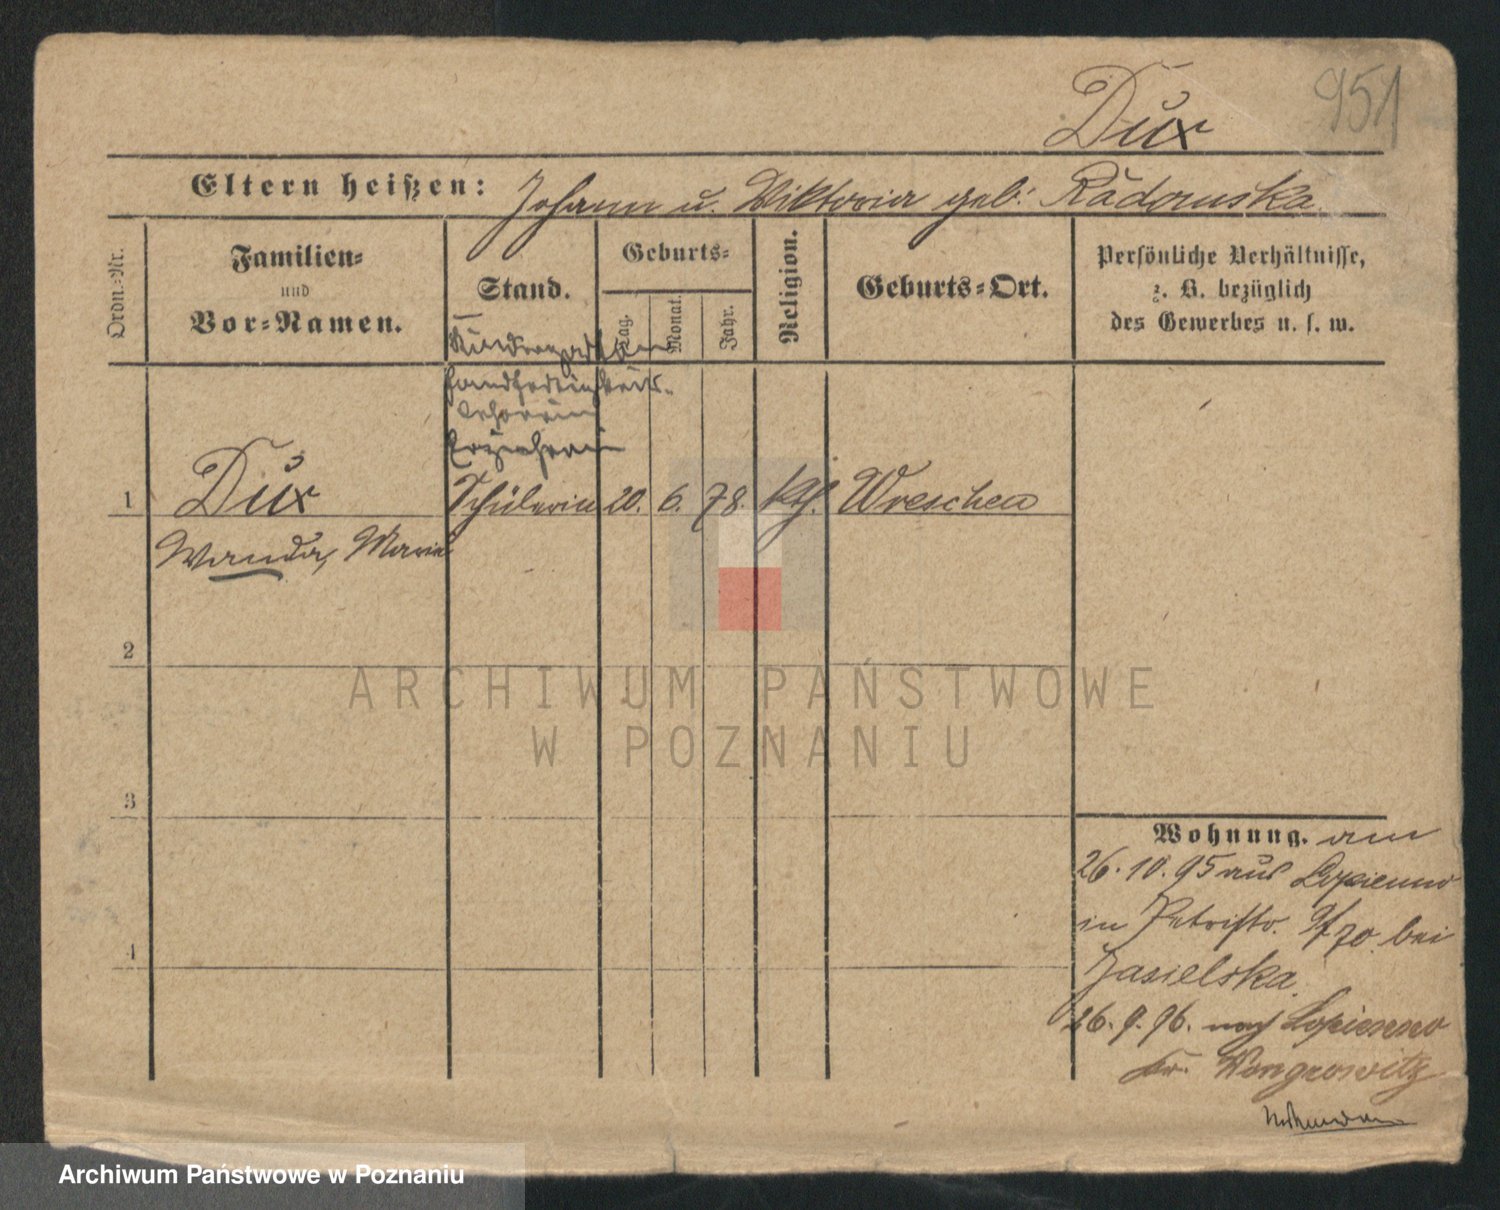 951
Dux
Eltern heißen: Johann u. Wiktoria geb. Radomska
Ordn.-Nr.
Familien-
und
Vor-Namen.
Stand.
Geburts-
Tag.
Monat.
Jahr.
Religion.
Geburts-Ort.
Persönliche Verhältnisse,
z. B. bezüglich
des Gewerbes u. s. w.
Kindergarten
Handfertigkeits-
lehrerin
Erzieherin
1 Dux Schülerin 20. 6. 78. kth. Wreschen
Wanda, Maria
2
3
4
Wohnung. am
26.10.95 aus Lopienno
in Petristr. 9/70 bei
Jasielska.
26.9.96. nach Lopienno
Kr. Wongrowitz
ARCHIWUM PAŃSTWOWE
W POZNANIU
Archiwum Państwowe w Poznaniu